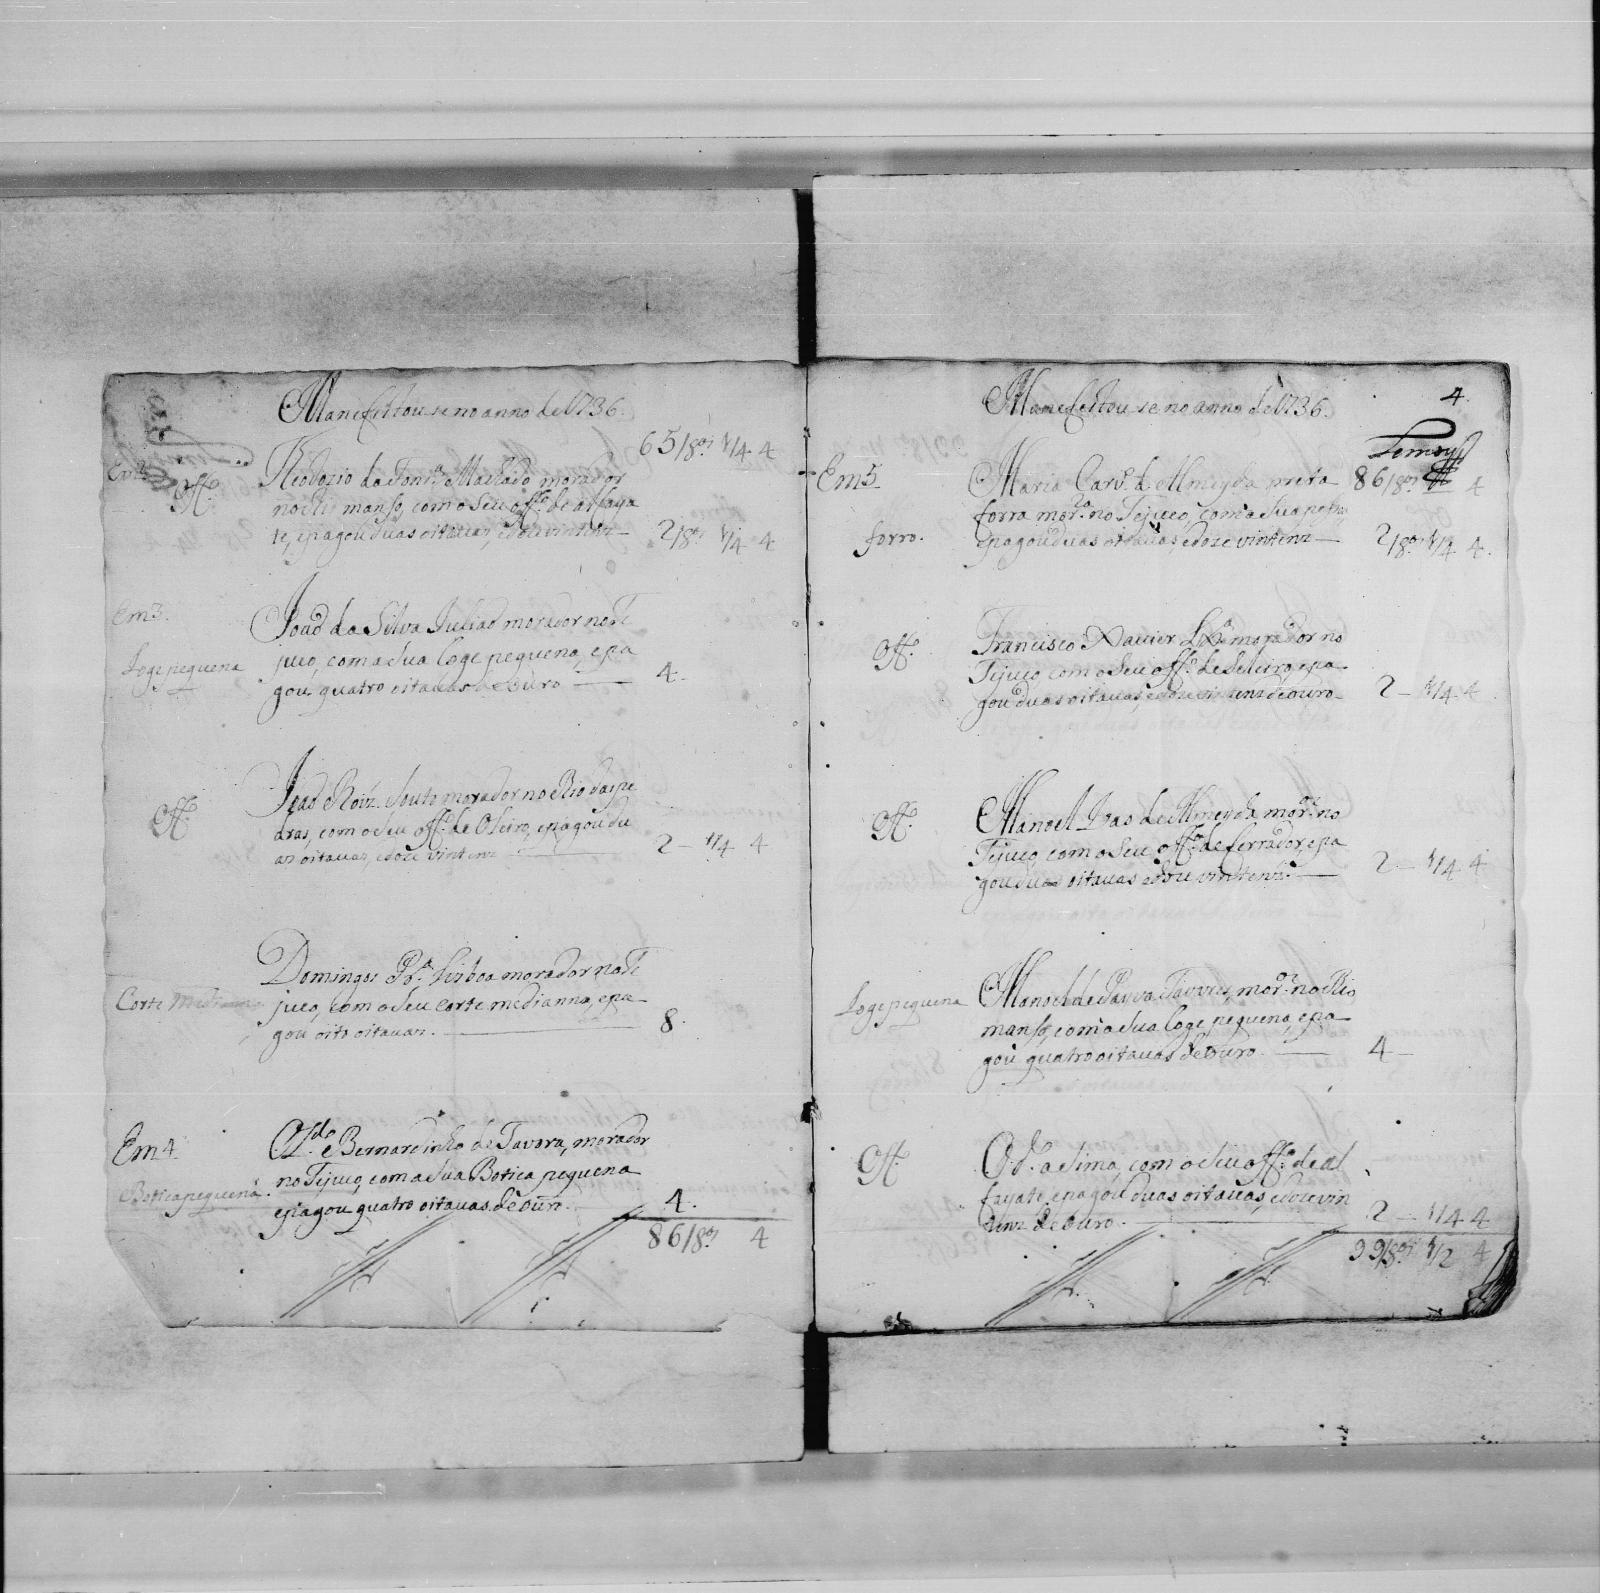 Manefestou se no anno de 1736.
65/8as 1/4 4
Off.
Theodozio da Fonca Machado morador
no Rio manso, com o seu offo. de alfaya
te, epagou duas oitavas, edoze vintens
2/8as 1/4 4
Em 3.
Loge pequena
Joaõ da Silva Juliaõ morador no Te
juco, com a sua loge pequena, epa
gou quatro oitavas de ouro
4.
Off.
Joaõ Roiz. Souto morador no Rio das pe
dras, com o seu offo. de Oleiro, epagou du
as oitavas, edoze vintens
2 — 1/4 4
Corte Medianna
Domingos Pra. Lisboa morador no Te
juco, com o seu corte medianna, epa
gou oito oitavas.
8.
Em 4
Botica pequena.
Bernardinho de Tavora, morador
no Tejuco, com a sua Botica pequena
epagou quatro oitavas de ouro.
4.
86/8as 4
Manefestou se no anno de 1736.
4.
Em 5
86/8as 4
forro.
Maria Carvo. de Almeyda preta
forra mora. no Tejuco, com a sua
epagou duas oitavas, edoze vintens
2/8as 1/4 4.
Off.
Francisco Xavier Lxa. morador no
Tejuco, com o seu offo. de Seleiro, epa
gou duas oitavas, edoze vintens de ouro
2 — 1/4 4
Off.
Manoel Dias de Almeyda mor. no
Tejuco, com o seu offo. de Cerrador, epa
gou duas oitavas edoze vintens.
2 — 1/4 4
Loge pequena
Manoel de Payva Tavares, mor. no Rio
manso, com a sua loge pequena, epa
gou quatro oitavas de ouro.
4 —
Off.
O do. asima, com o seu offo. de al
fayate, epagou duas oitavas, edoze vin
tens de ouro.
2 — 1/4 4
99/8as 1/2 4